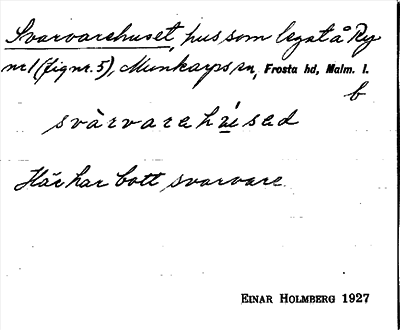 Svarvarehuset, hus som legat å Ry
nr 1 (fig nr. 5), Munkarps sn, Frosta hd, Malm. l.
b
svàrvarehúsed
Här har bott svarvare.
EINAR HOLMBERG 1927